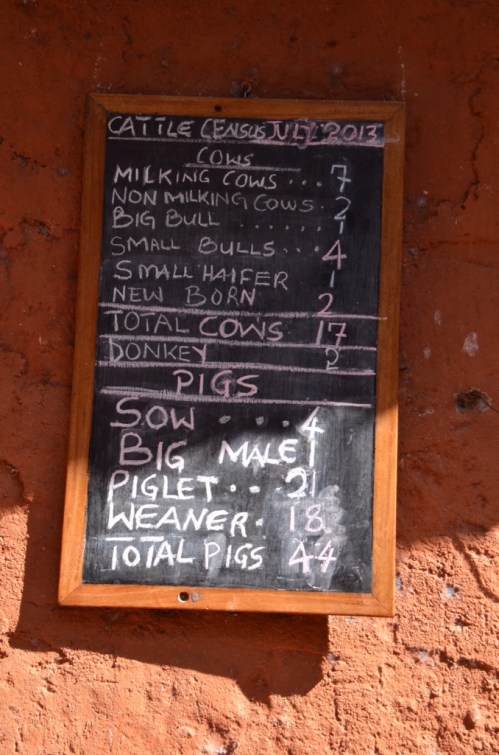 CATTLE CENSUS JULY 2013
COWS
MILKING COWS ... 7
NON MILKING COWS . 2
BIG BULL ...... 1
SMALL BULLS ... 4
SMALL HAIFER 1
NEW BORN 2
TOTAL COWS 17
DONKEY 2
PIGS
SOW .... 4
BIG MALE 1
PIGLET ... 21
WEANER . 18
TOTAL PIGS 44